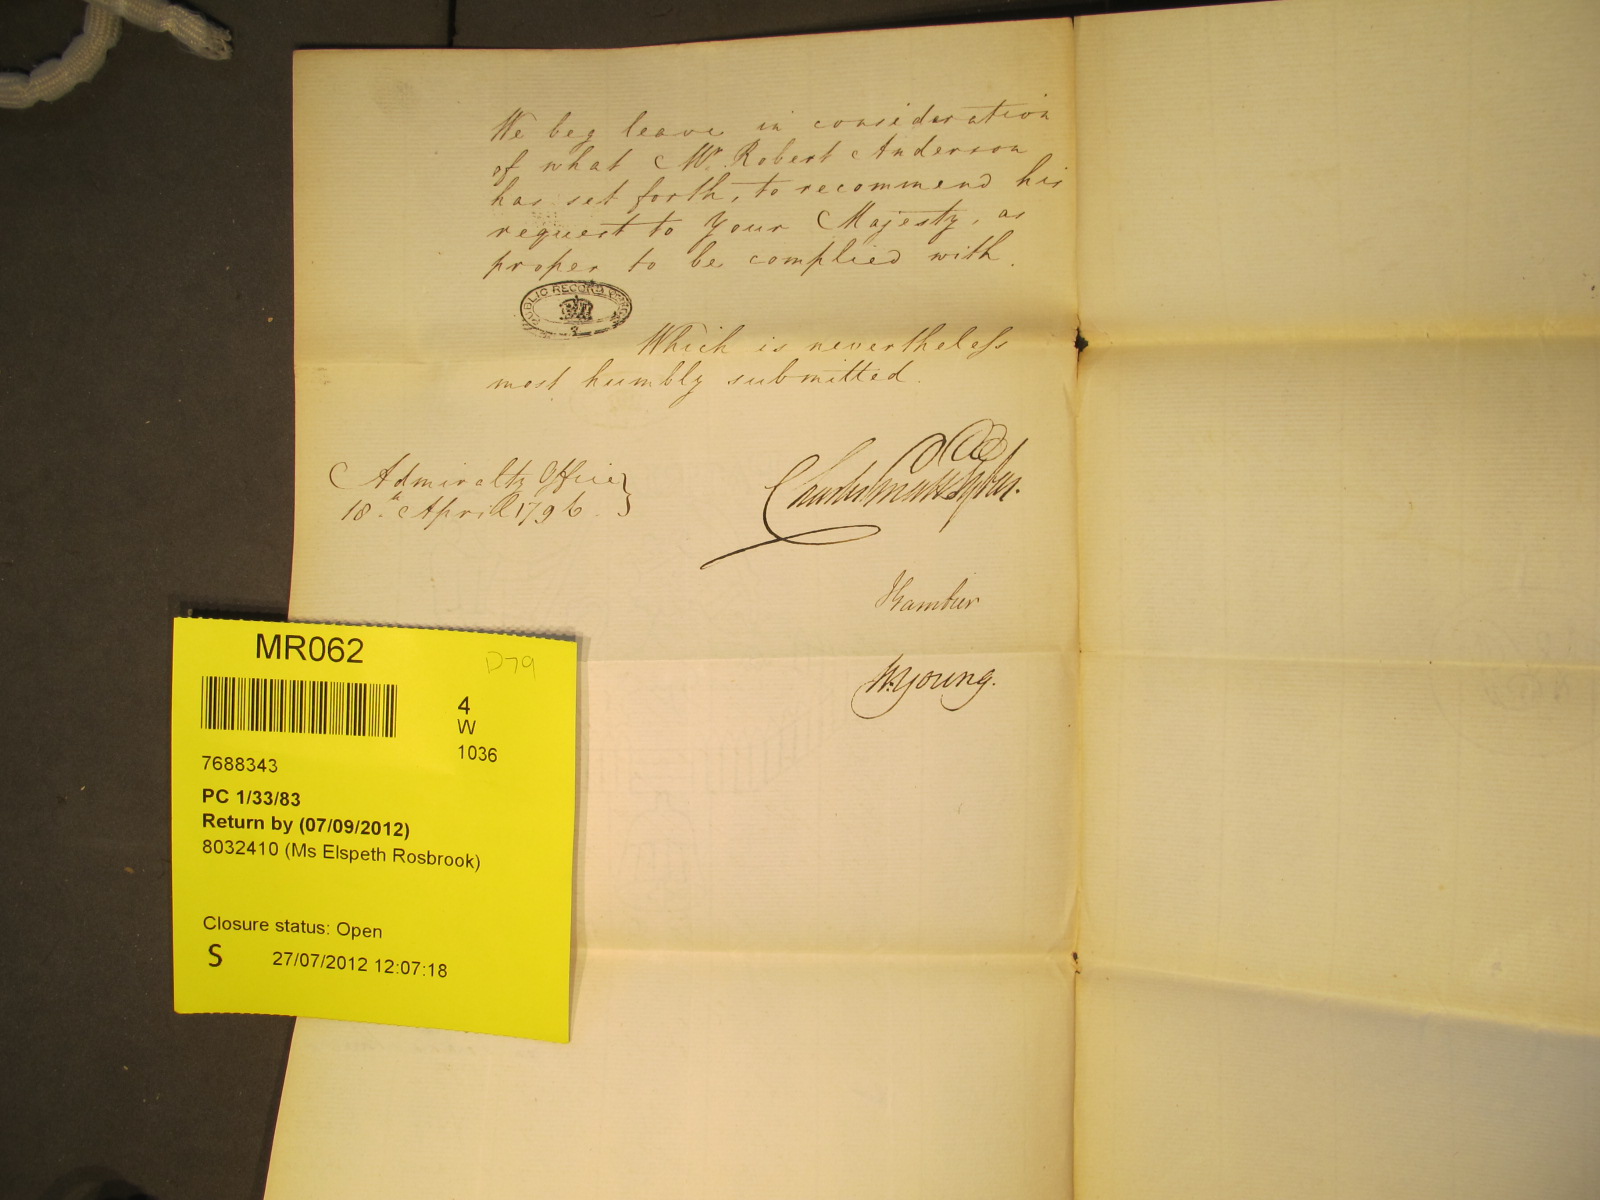 We beg leave in consideration
of what Mr. Robert Anderson
has set forth, to recommend his
request to Your Majesty, as
proper to be complied with.
PUBLIC RECORD OFFICE
Which is nevertheless
most humbly submitted.
Admiralty Office
18th. April 1796.
Gambier
Wm Young.
MR062
D79
4
W
1036
7688343
PC 1/33/83
Return by (07/09/2012)
8032410 (Ms Elspeth Rosbrook)
Closure status: Open
S 27/07/2012 12:07:18